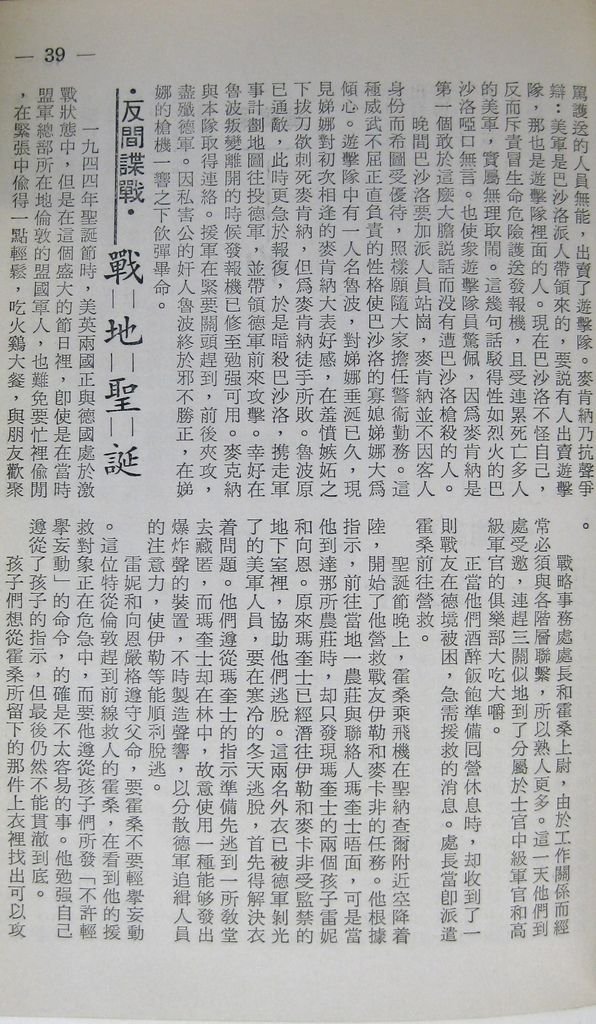 — 39 —
罵護送的人員無能，出賣了遊擊隊。麥肯納乃抗聲爭
辯：美軍是巴沙洛派人帶領來的，要說有人出賣遊擊
隊，那也是遊擊隊裡面的人。現在巴沙洛不怪自己，
反而斥責冒生命危險護送發報機，且受連累死亡多人
的美軍，實屬無理取鬧。這幾句話駁得性如烈火的巴
沙洛啞口無言。也使衆遊擊隊員驚佩，因爲麥肯納是
第一個敢於這麼大膽說話而沒有遭巴沙洛槍殺的人。
晚間巴沙洛要加派人員站崗，麥肯納並不因客人
身份而希圖受優待，照樣願隨大家擔任警衞勤務。這
種威武不屈正直負責的性格使巴沙洛的寡媳娣娜大爲
傾心。遊擊隊中有一人名魯波，對娣娜垂涎已久，現
見娣娜對初次相逢的麥肯納大表好感，在羞憤嫉妬之
下拔刀欲刺死麥肯納，但爲麥肯納徒手所敗。魯波原
已通敵，此時更急於報復，於是暗殺巴沙洛，携走軍
事計劃地圖往投德軍，並帶領德軍前來攻擊。幸好在
魯波叛變離開的時候發報機已修至勉强可用。麥克納
與本隊取得連絡。援軍在緊要關頭趕到，前後夾攻，
盡殲德軍。因私害公的奸人魯波終於邪不勝正，在娣
娜的槍機一響之下飲彈畢命。
·反間諜戰·戰地聖誕
一九四四年聖誕節時，美英兩國正與德國處於激
戰狀態中，但是在這個盛大的節日裡，即使是在當時
盟軍總部所在地倫敦的盟國軍人，也難免要忙裡偷閒
，在緊張中偷得一點輕鬆，吃火鷄大餐，與朋友歡聚
。
戰略事務處處長和霍桑上尉，由於工作關係而經
常必須與各階層聯繫，所以熟人更多。這一天他們到
處受邀，連趕三關似地到了分屬於士官中級軍官和高
級軍官的俱樂部大吃大嚼。
正當他們酒醉飯飽準備囘營休息時，却收到了一
則戰友在德境被困，急需援救的消息。處長當即派遣
霍桑前往營救。
聖誕節晚上，霍桑乘飛機在聖納查爾附近空降着
陸，開始了他營救戰友伊勒和麥卡非的任務。他根據
指示，前往當地一農莊與聯絡人瑪奎士晤面，可是當
他到達那所農莊時，却只發現瑪奎士的兩個孩子雷妮
和向恩。原來瑪奎士已經潛往伊勒和麥卡非受監禁的
地下室裡，協助他們逃脫。這兩名外衣已被德軍剝光
了的美軍人員，要在寒冷的冬天逃脫，首先得解決衣
着問題。他們遵從瑪奎士的指示準備先逃到一所敎堂
去藏匿，而瑪奎士却在林中，故意使用一種能够發出
爆炸聲的裝置，不時製造聲響，以分散德軍追緝人員
的注意力，使伊勒等能順利脫逃。
雷妮和向恩嚴格遵守父命，要霍桑不要輕擧妄動
。這位特從倫敦趕到前線救人的霍桑，在看到他的援
救對象正在危急中，而要他遵從孩子們所發「不許輕
擧妄動」的命令，的確是不太容易的事。他勉强自己
遵從了孩子的指示，但最後仍然不能貫澈到底。
孩子們想從霍桑所留下的那件上衣裡找出可以攻